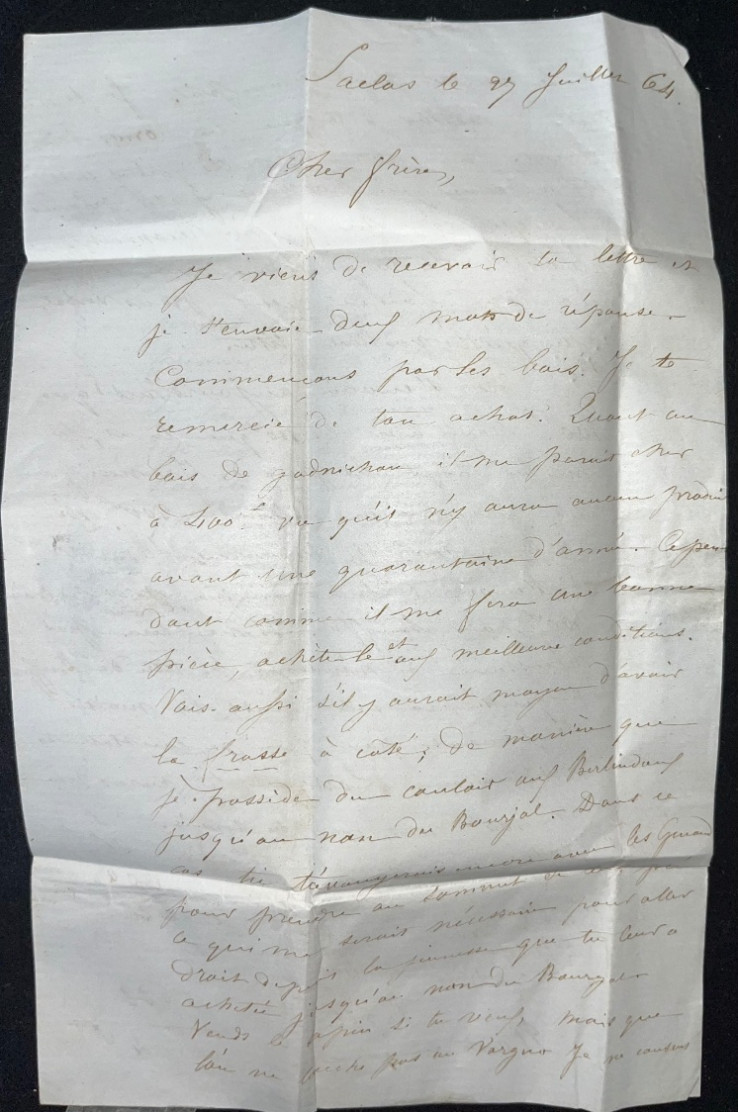 Saclas le 27 Juillet 64.
Cher frère,
Je viens de recevoir ta lettre et
je t'envoie deux mots de réponse.
Commençons par les bois. Je te
remercie de ton achat. Quant au
bois de il me parait cher
à 400 f vu qu'il n'y aura aucun produit
avant une quarantaine d'année. Cepen
dant comme il me fera une bonne
pièce, achète-le et aux meilleure conditions.
Vois aussi s'il y aurait moyen d'avoir
la frasse à coté, de manière que
je possède du couloir aux
jusqu'au nan du Bourjal. Dans ce
cas tu t'arrangerais encore avec les
pour prendre au sommet
ce qui me serait nécessaire pour aller
droit depuis la que tu auras
acheté jusqu'au nan du
Vends le sapin si tu veux, mais que
l'on ne pas au Je ne